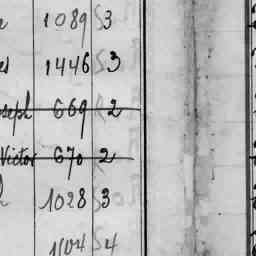 1089 3
1446 3
seph 669 2
Victor 670 2
1028 3
1104 4